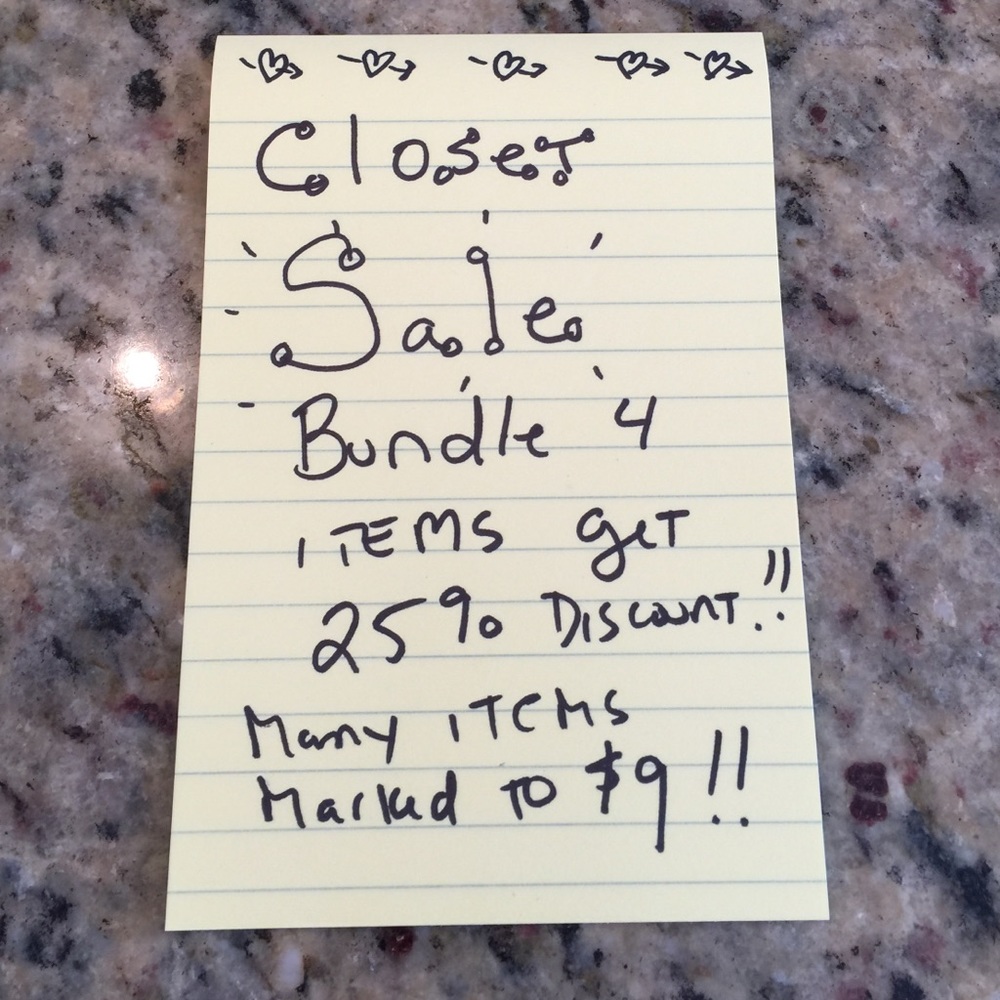 Closet
Sale
Bundle 4
ITEMS get
25% DISCOUNT!!
Many ITEMS
Marked TO $9 !!